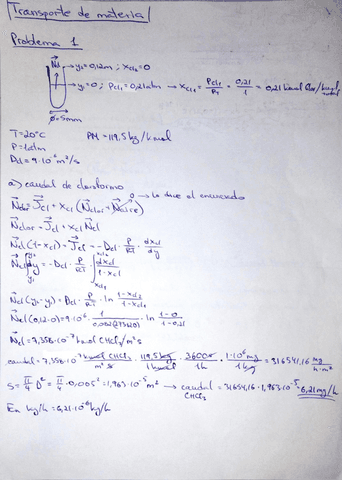 Transporte de material
Problema 1
y₂=0,12m ; x_cl₂=0
y₁=0 ; P_cl₁=0,21atm → x_cl₁ = P_cl₁/P_T = 0,21/1 = 0,21 kmol
Ø=5mm
T=20ºC PM=119,5 kg/kmol
P=1atm
D_cl=9·10⁻⁶ m²/s
a) caudal de cloroformo
→ lo dice el enunciado
N_clor = J_cl + x_cl (N_clor + N_aire) 0
N_clor = J_cl + x_cl N_cl
N_cl (1-x_cl) = J_cl = -D_cl · P/RT · dx_cl/dy
N_cl ∫dy = -D_cl · P/RT ∫ dx_cl/(1-x_cl)
N_cl (y₂-y₁) = D_cl · P/RT · ln (1-x_cl₂)/(1-x_cl₁)
N_cl (0,12-0) = 9·10⁻⁶ · 1/(0,082(273+20)) · ln (1-0)/(1-0,21)
N_cl = 7,358·10⁻⁷ kmol CHCl₃/m²s
caudal = 7,358·10⁻⁷ kmol CHCl₃/m²s · 119,5kg/1kmol · 3600s/1h · 1·10⁶mg/1kg = 316541,16 mg/h·m²
S = π/4 D² = π/4 · 0,005² = 1,963·10⁻⁵ m² → caudal CHCl₃ = 316541,16 · 1,963·10⁻⁵ = 6,21 mg/h
En kg/h = 6,21·10⁻⁶ kg/h